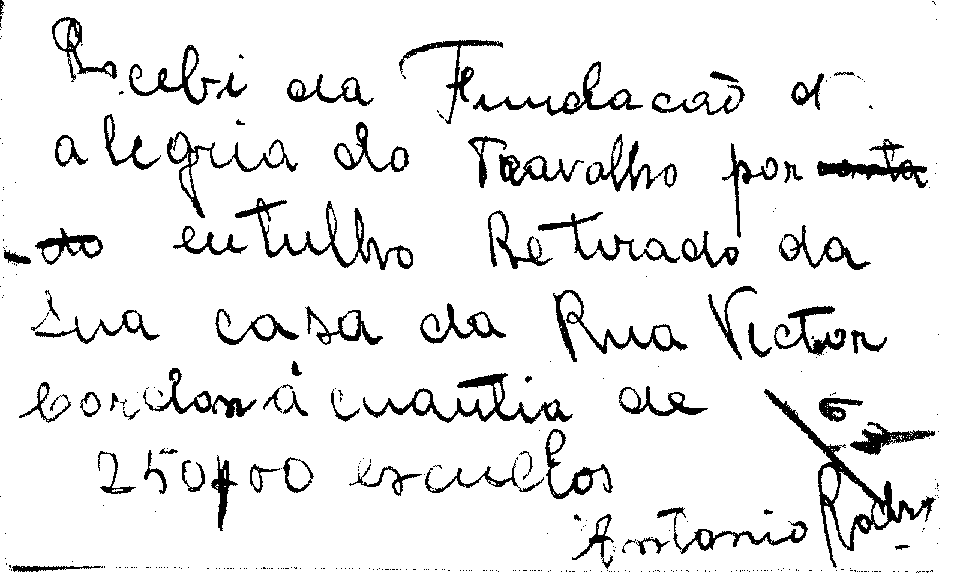 Recebi da Fundacão d
alegria do Travalho por
entulho Retirado da
sua casa da Rua Victor
Cordon á cuantia de
250$00 escudos
Antonio